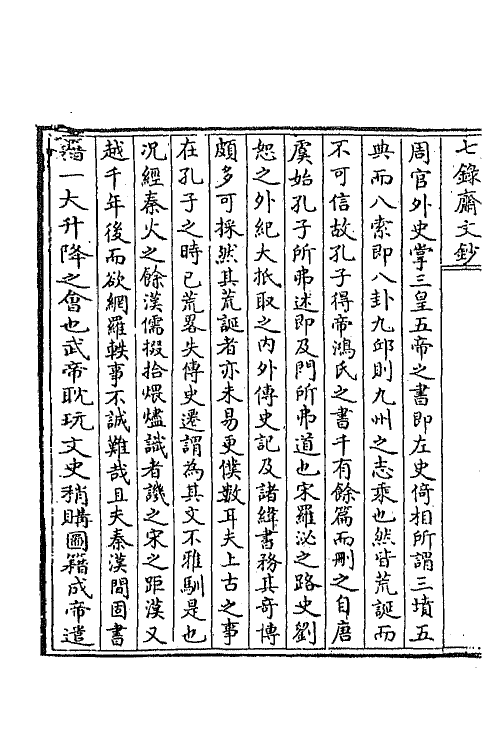 七錄齋文鈔
周官外史掌三皇五帝之書即左史倚相所謂三墳五
典而八索即八卦九邱則九州之志乘也然皆荒誕而
不可信故孔子得帝鴻氏之書千有餘篇而刪之自唐
虞始孔子所弗述即及門所弗道也宋羅泌之路史劉
恕之外紀大抵取之内外傳史記及諸緯書務其奇博
頗多可採然其荒誕者亦未易更僕數耳夫上古之事
在孔子之時已荒畧失傳史遷謂為其文不雅馴是也
况經秦火之餘漢儒掇拾煨燼識者譏之宋之距漢又
越千年後而欲網羅軼事不誠難哉且夫秦漢間固書
籍一大升降之會也武帝耽玩文史稍購圖籍成帝遣